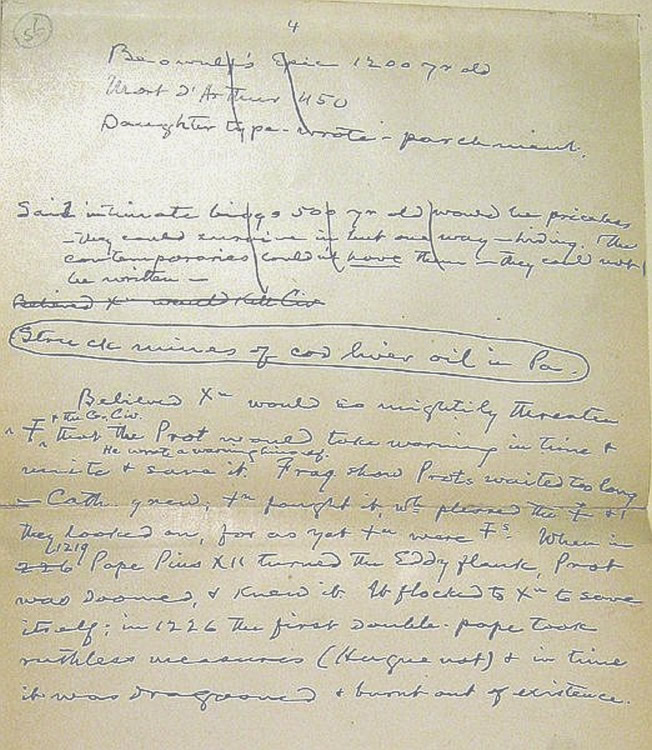 56
4
Beowulf's Epic 1200 yr old
Mort d'Arthur 450
Daughter type-wrote - parchment.
Said intimate biogs 500 yr old would be priceless
—they could survive in but one way—hiding. The
contemporaries couldn't have them—they could not
be written—
Believed Xn would kill Civ
Struck mines of cod liver oil in Pa.
Believed Xn would so mightily threaten
& the Gr. Civ.
F that the Prot would take warning in time &
He wrote a warning himself.
unite & save it. Frag show Prots waited too long
— Cath. grew; Xn fought it, wh pleased the F &
they looked on, for as yet Xn were Fs. When in
1219
226 Pope Pius XII turned the Eddy flank, Prot
was doomed, & knew it. It flocked to Xn to save
itself; in 1226 the first double-pope took
ruthless measures (Huguenot) & in time
it was dragooned & burnt out of existence.